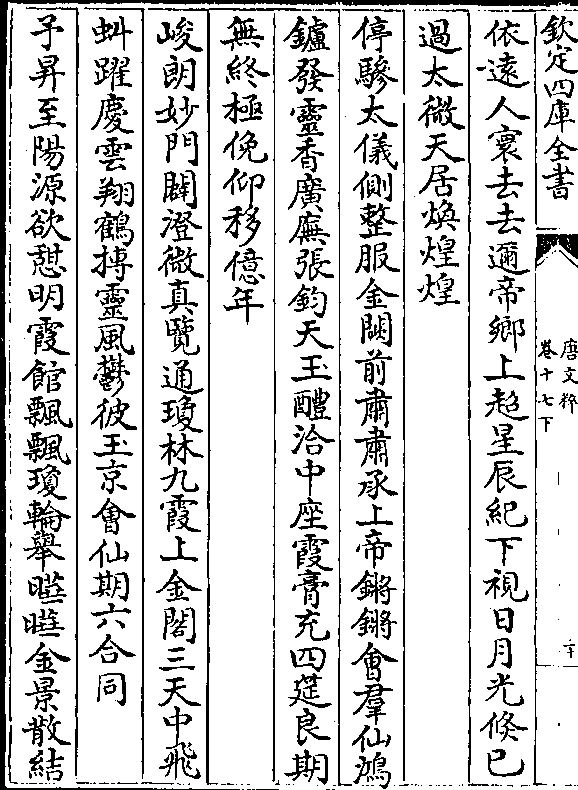 欽定四庫全書
唐文粹
卷十七下
二十
依遠人寰去去邇帝鄉上超星辰紀下視日月光倐已
過太微天居煥煌煌
停驂太儀側整服金闕前肅肅承上帝鏘鏘會羣仙鴻
鑪發靈香廣廡張鈞天玉醴洽中座霞膏充四筵良期
無終極俛仰移億年
峻朗妙門闢澄微真覽通瓊林九霞上金閣三天中飛
虯躍慶雲翔鶴摶靈風鬱彼玉京會仙期六合同
予昇至陽源欲憩明霞館飄飄瓊輪舉曈曈金景散結